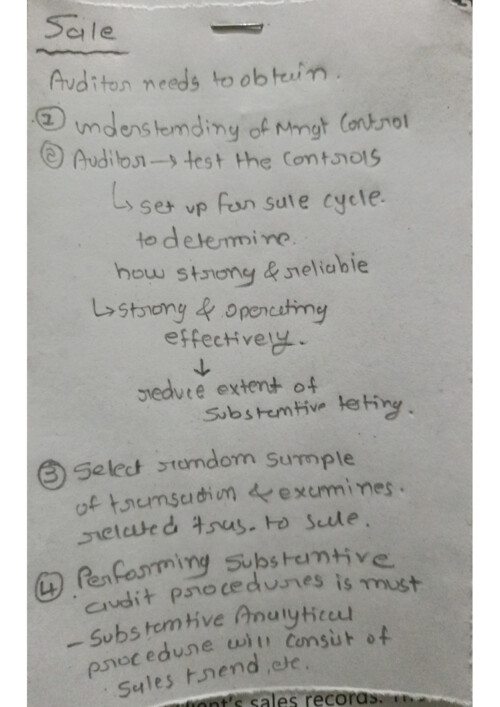 Sale
Auditor needs to obtain.
① understanding of Mngt Control
② Auditor → test the controls
↳ set up for sale cycle.
to determine.
how strong & reliable
↳ strong & operating
effectively.
↓
reduce extent of
substantive testing.
③ Select random sample
of transaction & examines.
related tras. to sale.
④ Performing substantive
audit procedures is must
- Substantive Analytical
procedure will consist of
sales trend, etc.
sales records.